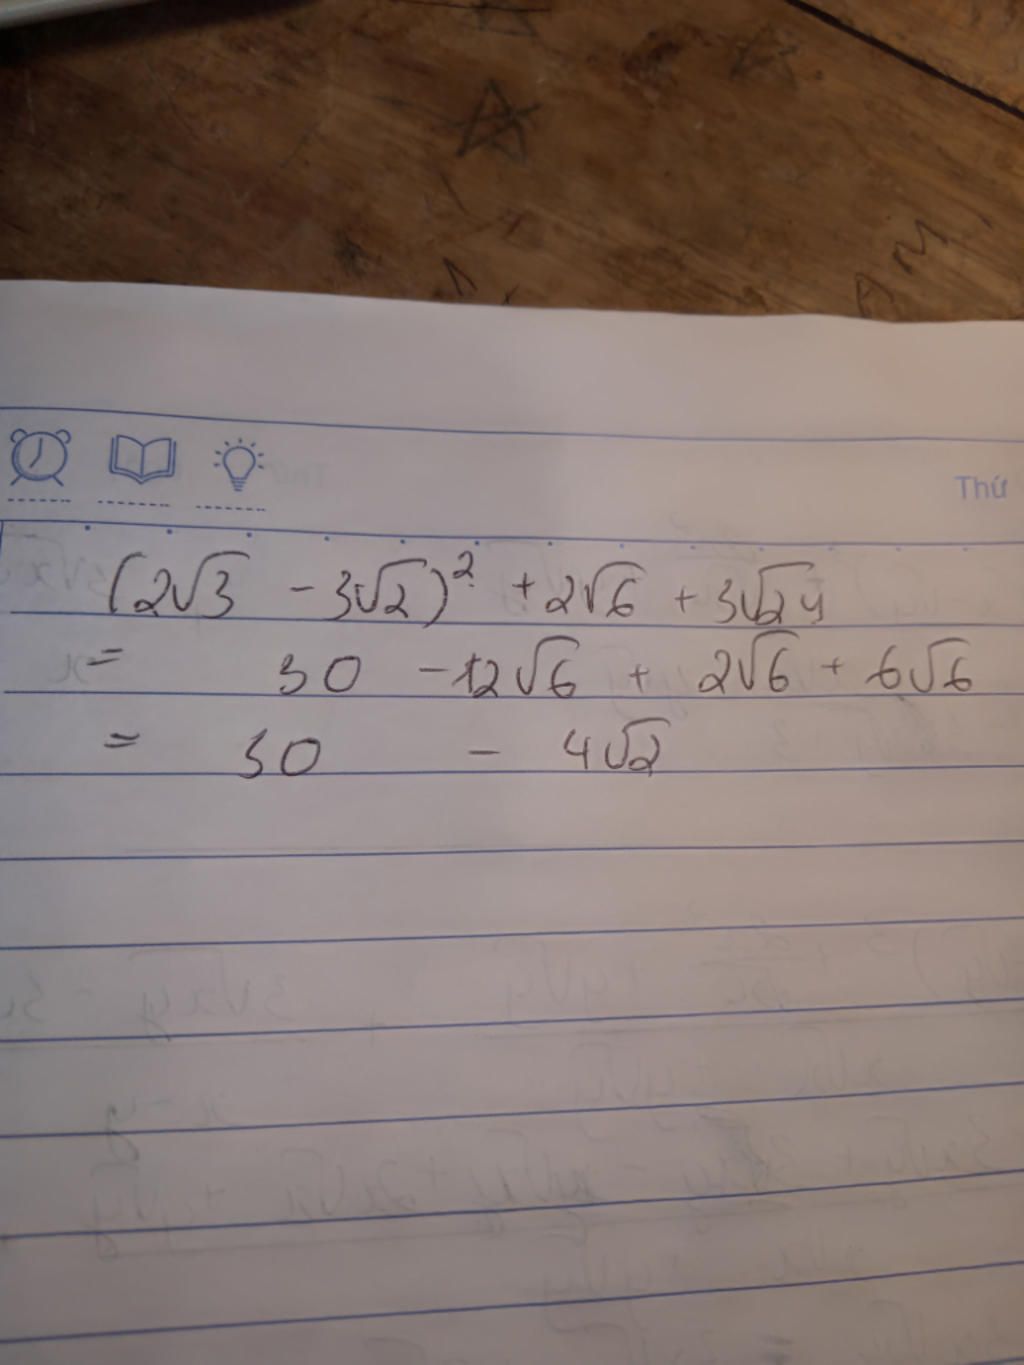 Thứ
(2√3 - 3√2)² + 2√6 + 3√24
= 30 - 12√6 + 2√6 + 6√6
= 30 - 4√2